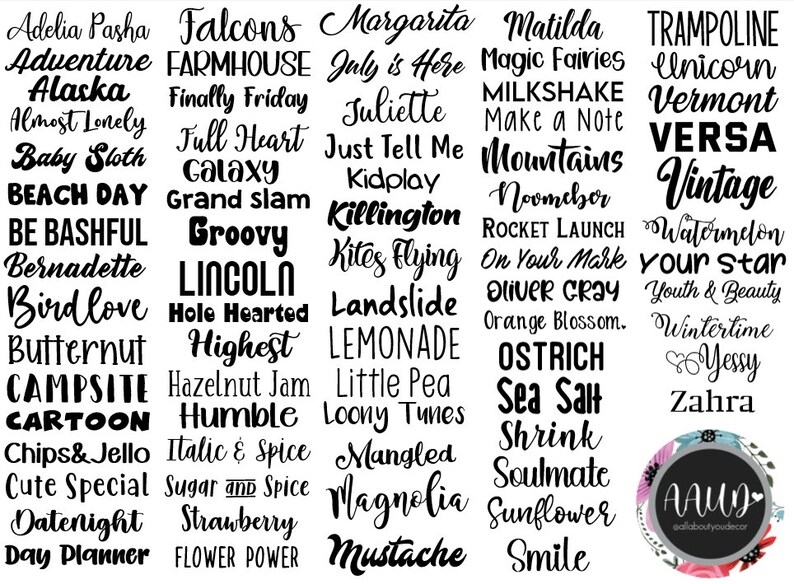 Adelia Pasha
Adventure
Alaska
Almost Lonely
Baby Sloth
BEACH DAY
BE BASHFUL
Bernadette
Birdlove
Butternut
CAMPSITE
CARTOON
Chips&Jello
Cute Special
Datenight
Day Planner
Falcons
FARMHOUSE
Finally Friday
Full Heart
GALAXY
Grand slam
Groovy
LINCOLN
Hole Hearted
Highest
Hazelnut Jam
Humble
Italic & Spice
Sugar and Spice
Strawberry
FLOWER POWER
Margarita
July is Here
Juliette
Just Tell Me
Kidplay
Killington
Kites Flying
Landslide
LEMONADE
Little Pea
Loony Tunes
Mangled
Magnolia
Mustache
Matilda
Magic Fairies
MILKSHAKE
Make a Note
Mountains
Novmeber
ROCKET LAUNCH
On Your Mark
OLIVER GRAY
Orange Blossom.
OSTRICH
Sea Salt
Shrink
Soulmate
Sunflower
Smile
TRAMPOLINE
Unicorn
Vermont
VERSA
Vintage
Watermelon
Your Star
Youth & Beauty
Wintertime
Yessy
Zahra
AAUD
@allaboutyoudecor